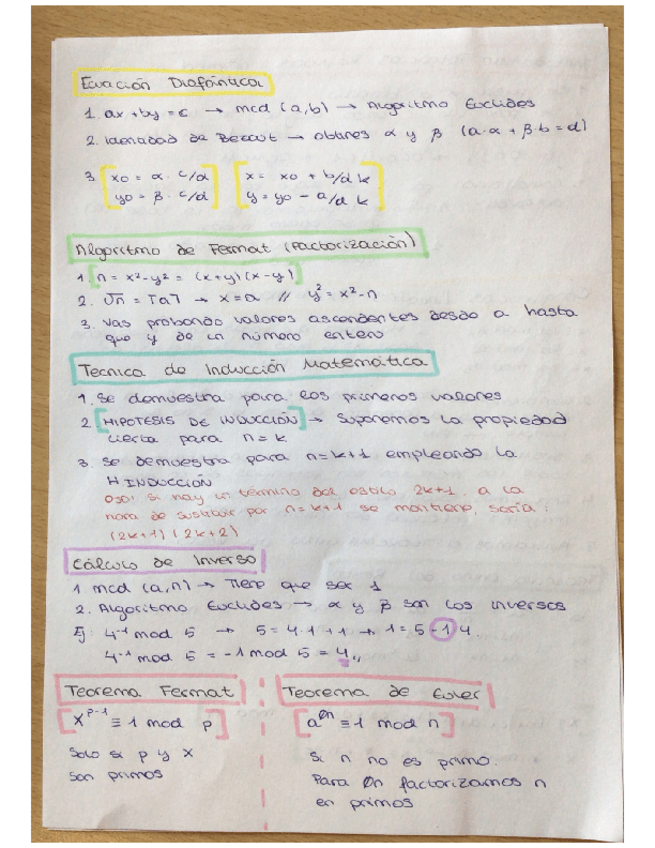 Ecuación Diofántica
1. ax + by = c → mcd (a,b) → Algoritmo Euclides
2. Identidad de Bezout → obtines α y β (a·α + β·b = d)
3. x0 = α · c/d x = x0 + b/d k
y0 = β · c/d y = y0 - a/d k
Algoritmo de Fermat (Factorización)
1. n = x² - y² = (x+y)(x-y)
2. √n = ⌈a⌉ → x = a // y² = x² - n
3. Vas probando valores ascendentes desde a hasta
que y de un número entero
Tecnica de Inducción Matemática
1. Se demuestra para los primeros valores
2. HIPOTESIS DE INDUCCIÓN → Suponemos la propiedad
cierta para n = k
3. Se demuestra para n = k+1 empleando la
H INDUCCIÓN
OJO! Si hay un término del estilo 2k+1, a la
hora de sustituir por n = k+1 se mantiene, sería:
(2k+1)(2k+2)
Cálculo de Inverso
1 mcd (a,n) → Tiene que ser 1
2. Algoritmo Euclides → α y β son los inversos
Ej: 4⁻¹ mod 5 → 5 = 4·1 + 1 → 1 = 5 - 1 4.
4⁻¹ mod 5 = -1 mod 5 = 4,,
Teorema Fermat Teorema de Euler
x^p-1 ≡ 1 mod p a^∅n ≡ 1 mod n
Solo si p y x Si n no es primo.
son primos Para ∅n factorizamos n
en primos